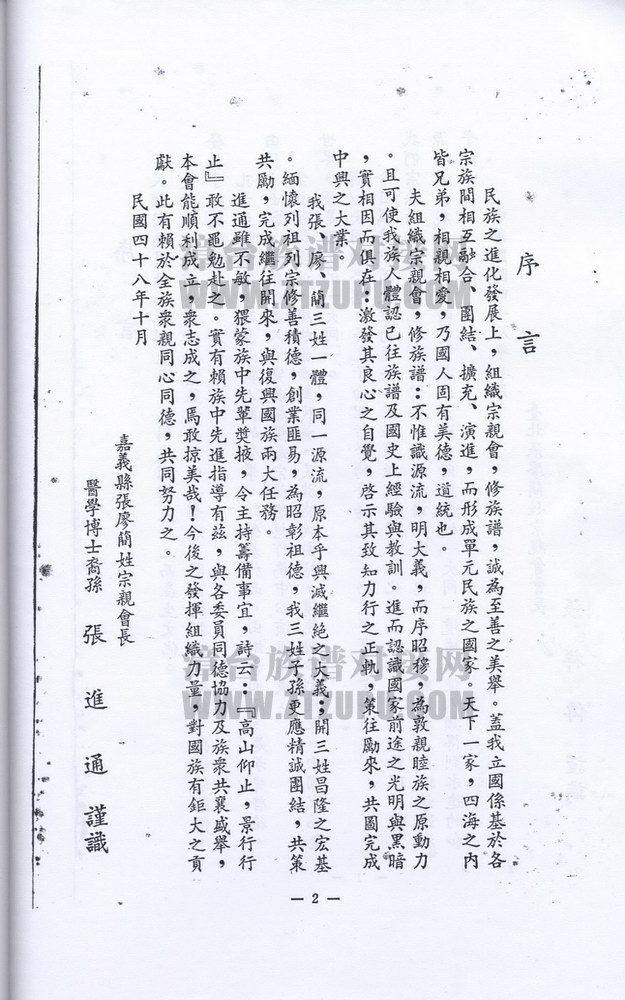 序言
民族之進化發展上，組織宗親會，修族譜，誠為至善之美舉。蓋我立國係基於各
宗族間相互融合、團結、擴充、演進，而形成單元民族之國家。天下一家，四海之內
皆兄弟，相親相愛，乃國人固有美德，道統也。
夫組織宗親會，修族譜：不惟識源流，明大義，而序昭穆，為敦親睦族之原動力
。且可使我族人體認已往族譜及國史上經驗與教訓。進而認識國家前途之光明與黑暗
，實相因而俱在：激發其良心之自覺，啓示其致知力行之正軌，策往勵來，共圖完成
中興之大業。
我張、廖、簡三姓一體，同一源流，原本乎興滅繼絶之大義；開三姓昌隆之宏基
。緬懷列祖列宗修善積德，創業匪易，為昭彰祖德，我三姓子孫更應精誠團結，共策
共勵，完成繼往開來，與復興國族兩大任務。
進通雖不敏，猥蒙族中先輩奬掖，令主持籌備事宜，詩云：『高山仰止，景行行
止』敢不黽勉赴之。實有賴族中先進指導有茲，與各委員同德協力及族衆共襄盛舉，
本會能順利成立，衆志成之，焉敢掠美哉！今後之發揮組織力量，對國族有鉅大之貢
獻。此有賴於全族衆親同心同德，共同努力之。
民國四十八年十月
嘉義縣張廖簡姓宗親會長
醫學博士裔孫 張進通 謹識
— 2 —
漳台族谱对接网
WWW.ZTZUPU.COM
漳台族谱对接网
WWW.ZTZUPU.COM